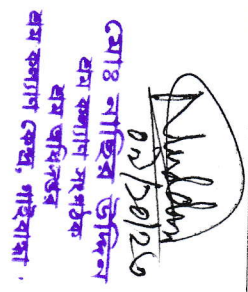 মোঃ নাছির উদ্দিন
শ্রম কল্যাণ সংগঠক
শ্রম অধিদপ্তর
শ্রম কল্যাণ কেন্দ্র, গাইবান্ধা।